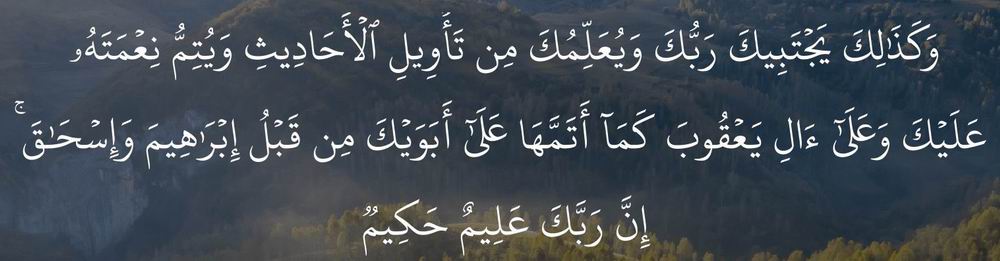 وَكَذَٰلِكَ يَجۡتَبِيكَ رَبُّكَ وَيُعَلِّمُكَ مِن تَأۡوِيلِ ٱلۡأَحَادِيثِ وَيُتِمُّ نِعۡمَتَهُۥ
عَلَيۡكَ وَعَلَىٰٓ ءَالِ يَعۡقُوبَ كَمَآ أَتَمَّهَا عَلَىٰٓ أَبَوَيۡكَ مِن قَبۡلُ إِبۡرَٰهِيمَ وَإِسۡحَٰقَۚ
إِنَّ رَبَّكَ عَلِيمٌ حَكِيمٞ